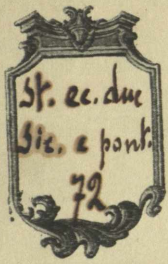 St. ec. duc
Sic. e pont.
72